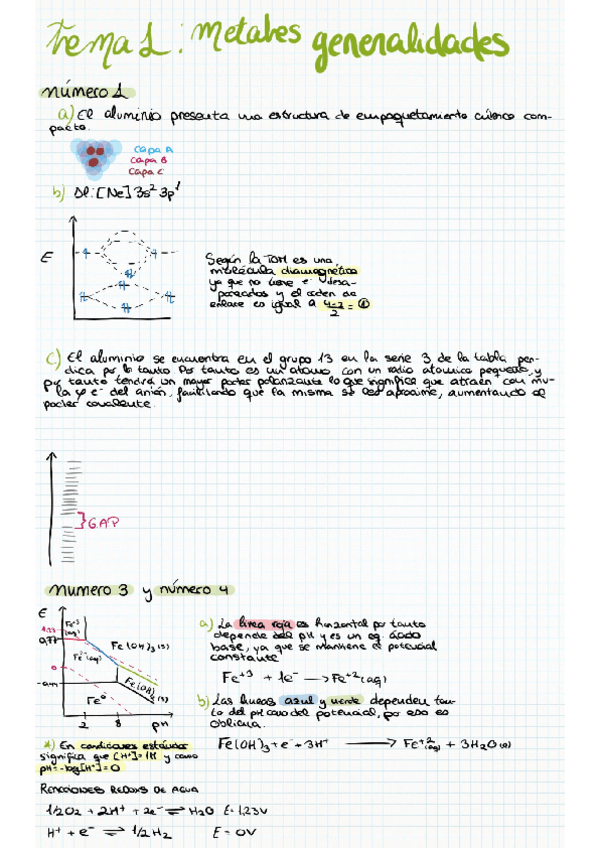 Tema 1: Metales generalidades
número 1
a) El aluminio presenta una estructura de empaquetamiento cúbico com-
pacto.
Capa A
Capa B
Capa C
b) Al: [Ne] 3s² 3p¹
E
Según la TOM es una
molécula diamagnética
ya que no tiene e⁻ desa-
pareados y el orden de
enlace es igual a
c) El aluminio se encuentra en el grupo 13 en la serie 3 de la tabla per-
dica por lo tanto Por tanto es un átomo, con un radio atomico pequeño, y
por tanto tendrá un mayor poder polarizante lo que significa que atraen con mu-
la e⁻ del anión, facilitando que la misma se les aproxime, aumentando el
poder covalente.
GAP
numero 3 y número 4
E
0,77
Fe⁺³
(aq)
Fe(OH)₃(s)
Fe²⁺(aq)
Fe(OH)₂(s)
Fe⁰
2
8
pH
a) La línea roja es horizontal por tanto
depende del pH y es un eq. ácido
base, ya que se mantiene el potencial
constante
Fe⁺³ + 1e⁻ → Fe⁺²(aq)
b) Las líneas azul y verde dependen tan-
to del pH como del potencial, por eso es
oblicua.
Fe(OH)₃ + e⁻ + 3H⁺ → Fe⁺²(aq) + 3H₂O(l)
*) En condiciones estándar
significa que [H⁺]=1M y como
pH=-log[H⁺]=0
REACCIONES REDOX DE AGUA
1/2O₂ + 2H⁺ + 2e⁻ ⇌ H₂O E=1,23V
H⁺ + e⁻ ⇌ 1/2H₂ E=0V